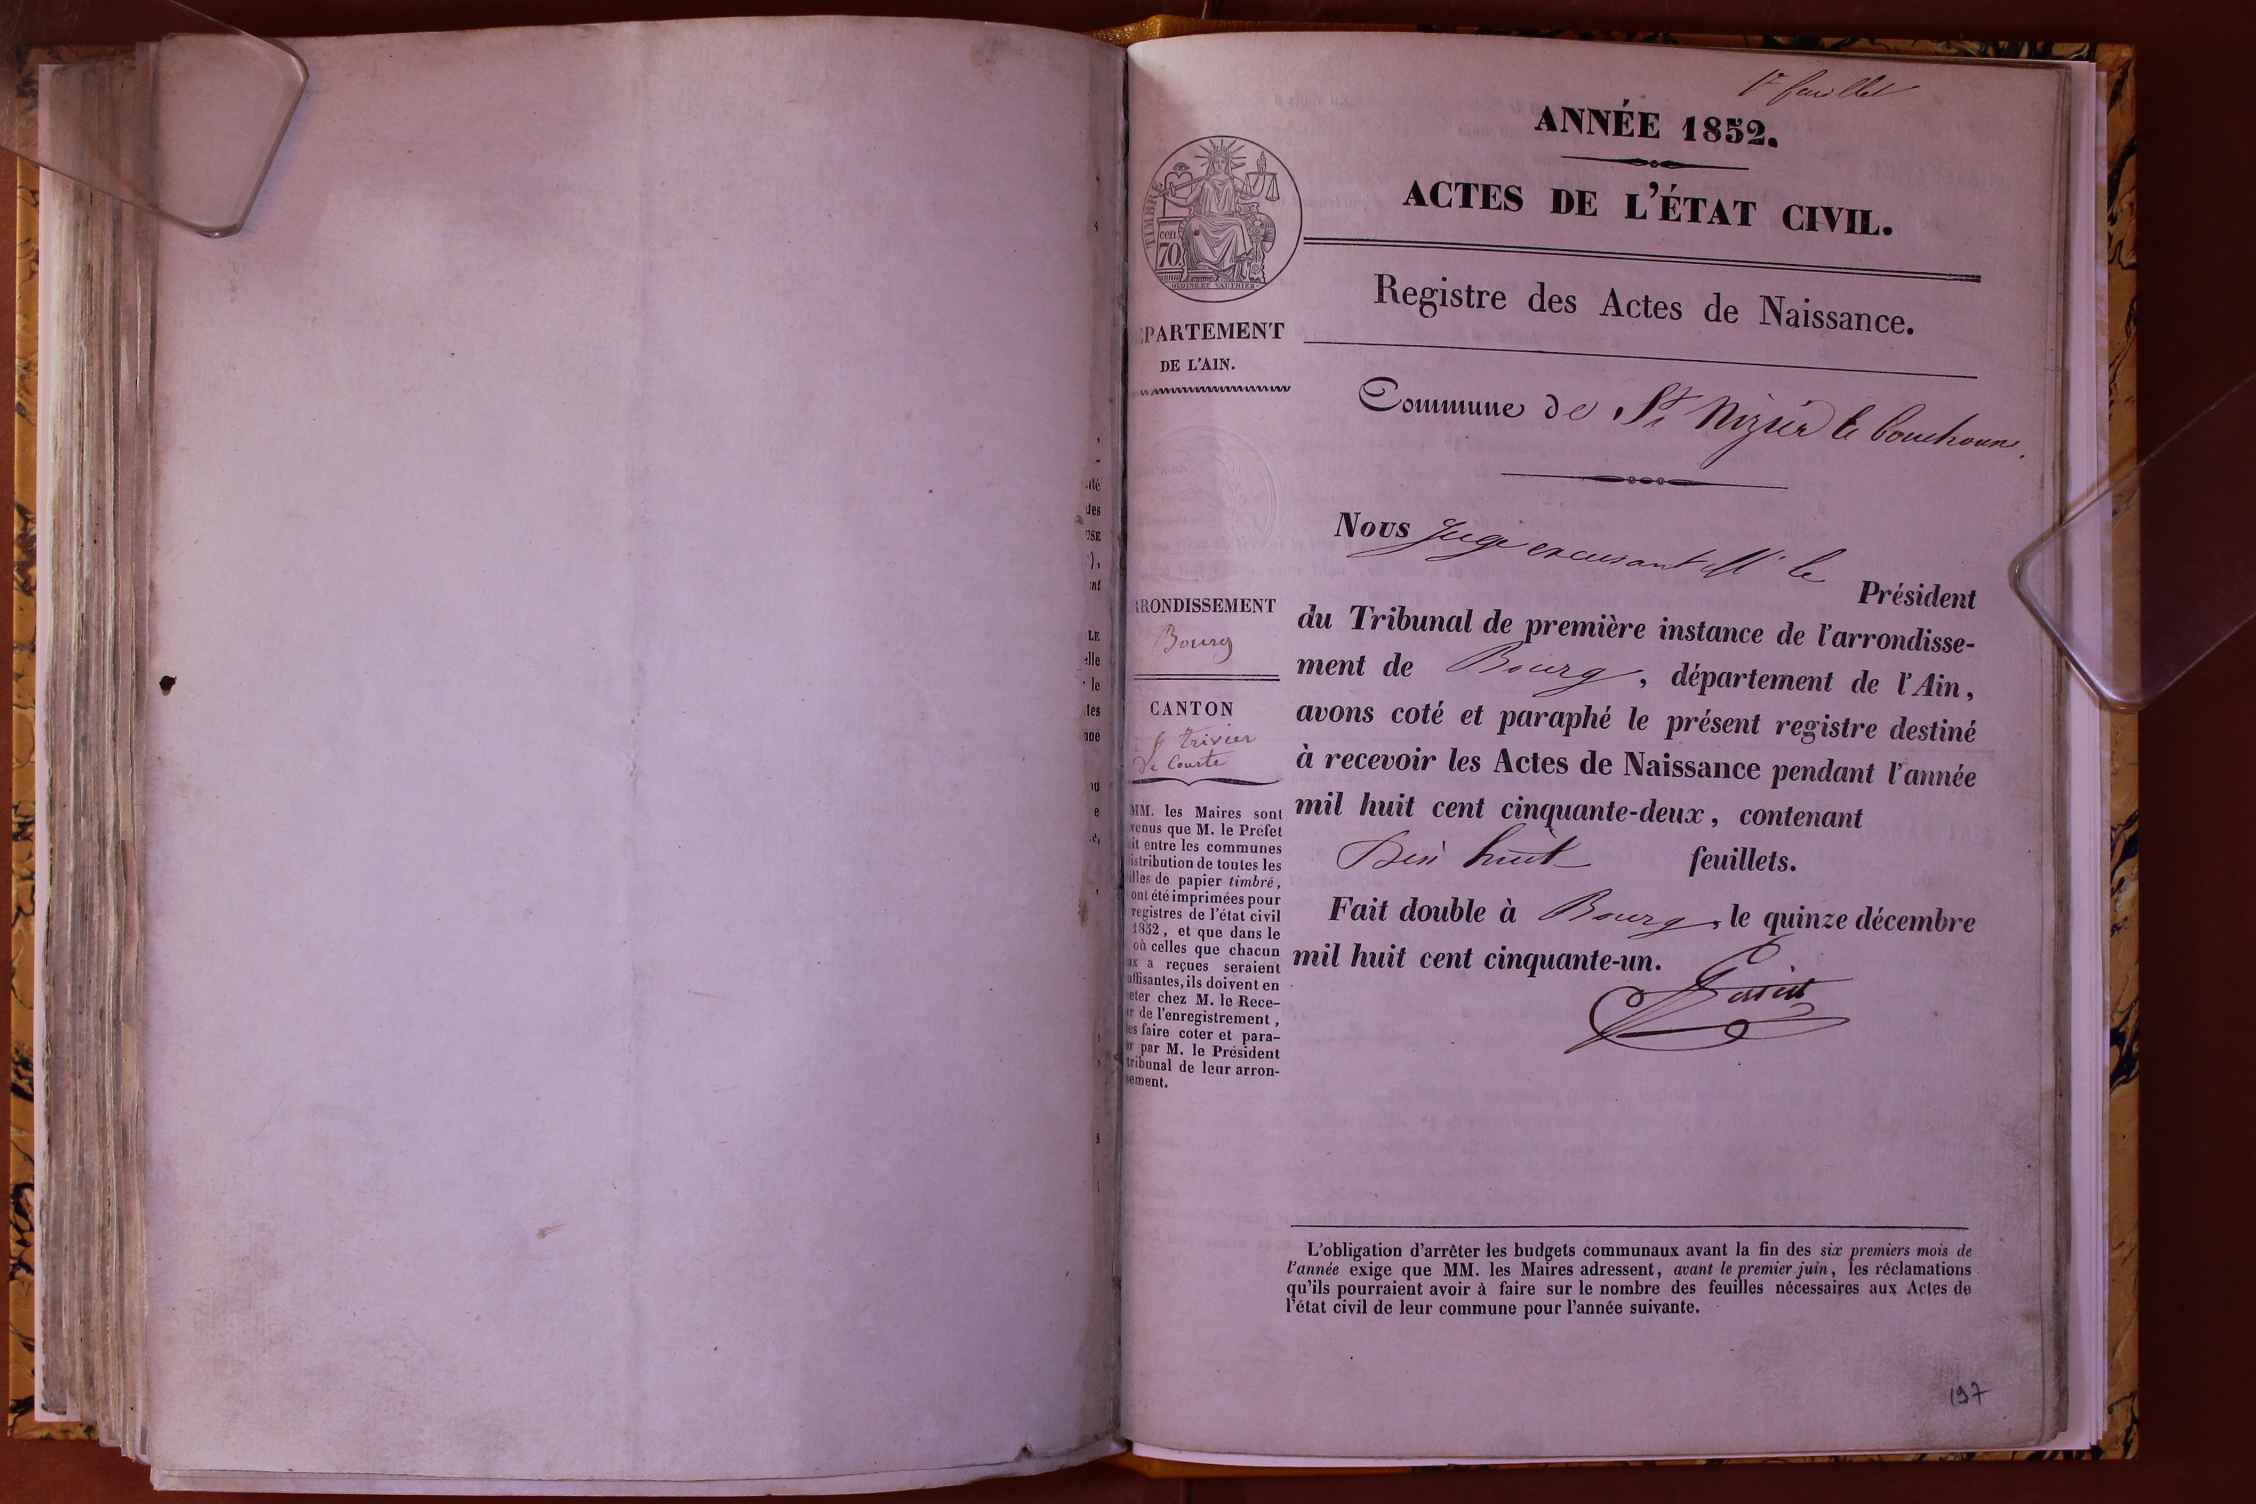 1er feuillet
ANNÉE 1852.
ACTES DE L'ÉTAT CIVIL.
TIMBRE
cen
70
Registre des Actes de Naissance.
EPARTEMENT
DE L'AIN.
Commune de St Nizier le bouchoux.
Nous Juge excusant Mr le Président
du Tribunal de première instance de l'arrondisse-
ment de Bourg, département de l'Ain,
avons coté et paraphé le présent registre destiné
à recevoir les Actes de Naissance pendant l'année
mil huit cent cinquante-deux, contenant
Dix huit feuillets.
Fait double à Bourg, le quinze décembre
mil huit cent cinquante-un.
RRONDISSEMENT
Bourg
CANTON
St trivier
De Courte
MM. les Maires sont
venus que M. le Préfet
it entre les communes
istribution de toutes les
illes de papier timbré,
ont été imprimées pour
registres de l'état civil
1852, et que dans le
où celles que chacun
ux a reçues seraient
uffisantes, ils doivent en
eter chez M. le Rece-
r de l'enregistrement,
es faire coter et para-
r par M. le Président
tribunal de leur arron-
sement.
L'obligation d'arrêter les budgets communaux avant la fin des six premiers mois de
l'année exige que MM. les Maires adressent, avant le premier juin, les réclamations
qu'ils pourraient avoir à faire sur le nombre des feuilles nécessaires aux Actes de
l'état civil de leur commune pour l'année suivante.
197